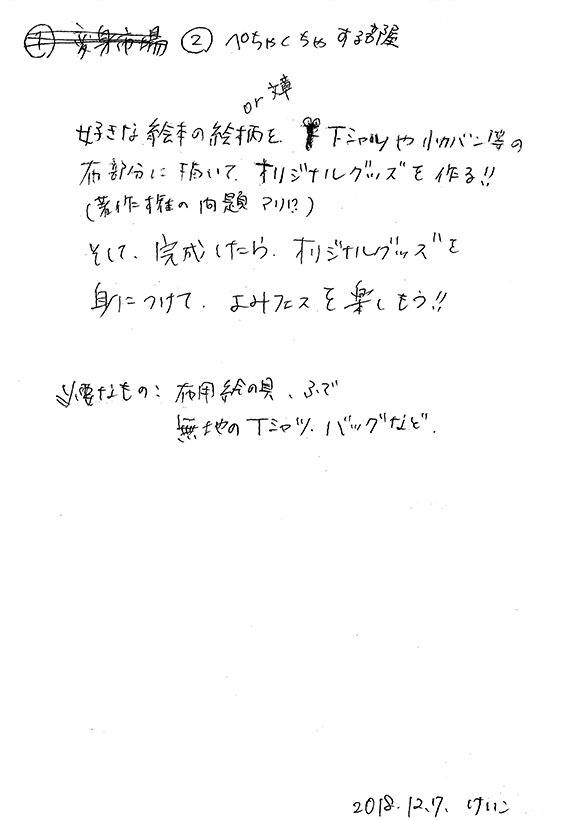 ① 変身市場 ② ぺちゃくちゃする部屋
or 文章
好きな絵本の絵柄を Tシャツや小カバン等の
布部分に描いて、オリジナルグッズを作る!!
(著作権の問題アリ!?)
そして、完成したら、オリジナルグッズを
身につけて、よみフェスを楽しもう!!
必要なもの: 布用絵の具、ふで
無地のTシャツ、バッグなど.
2018.12.7. けいこ